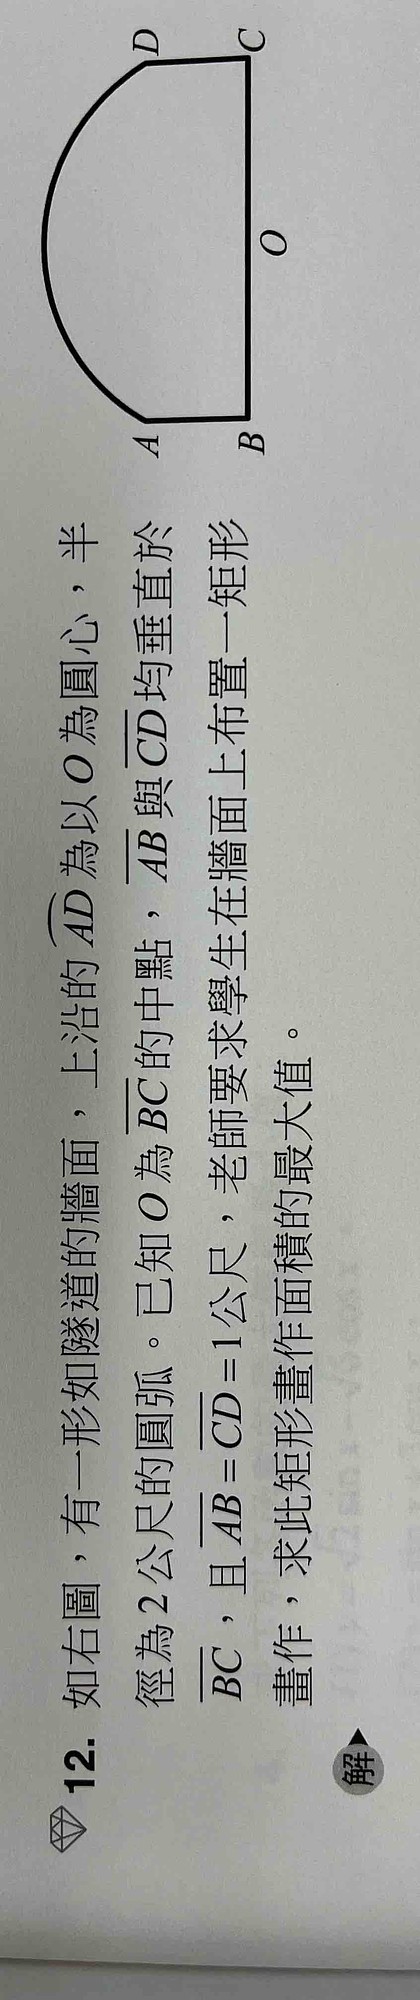 12. 如右圖，有一形如隧道的牆面，上沿的 AD 為以 O 為圓心，半
徑為 2 公尺的圓弧。已知 O 為 BC 的中點，AB 與 CD 均垂直於
BC，且 AB = CD = 1 公尺，老師要求學生在牆面上布置一矩形
畫作，求此矩形畫作面積的最大值。
解
A
D
B
O
C